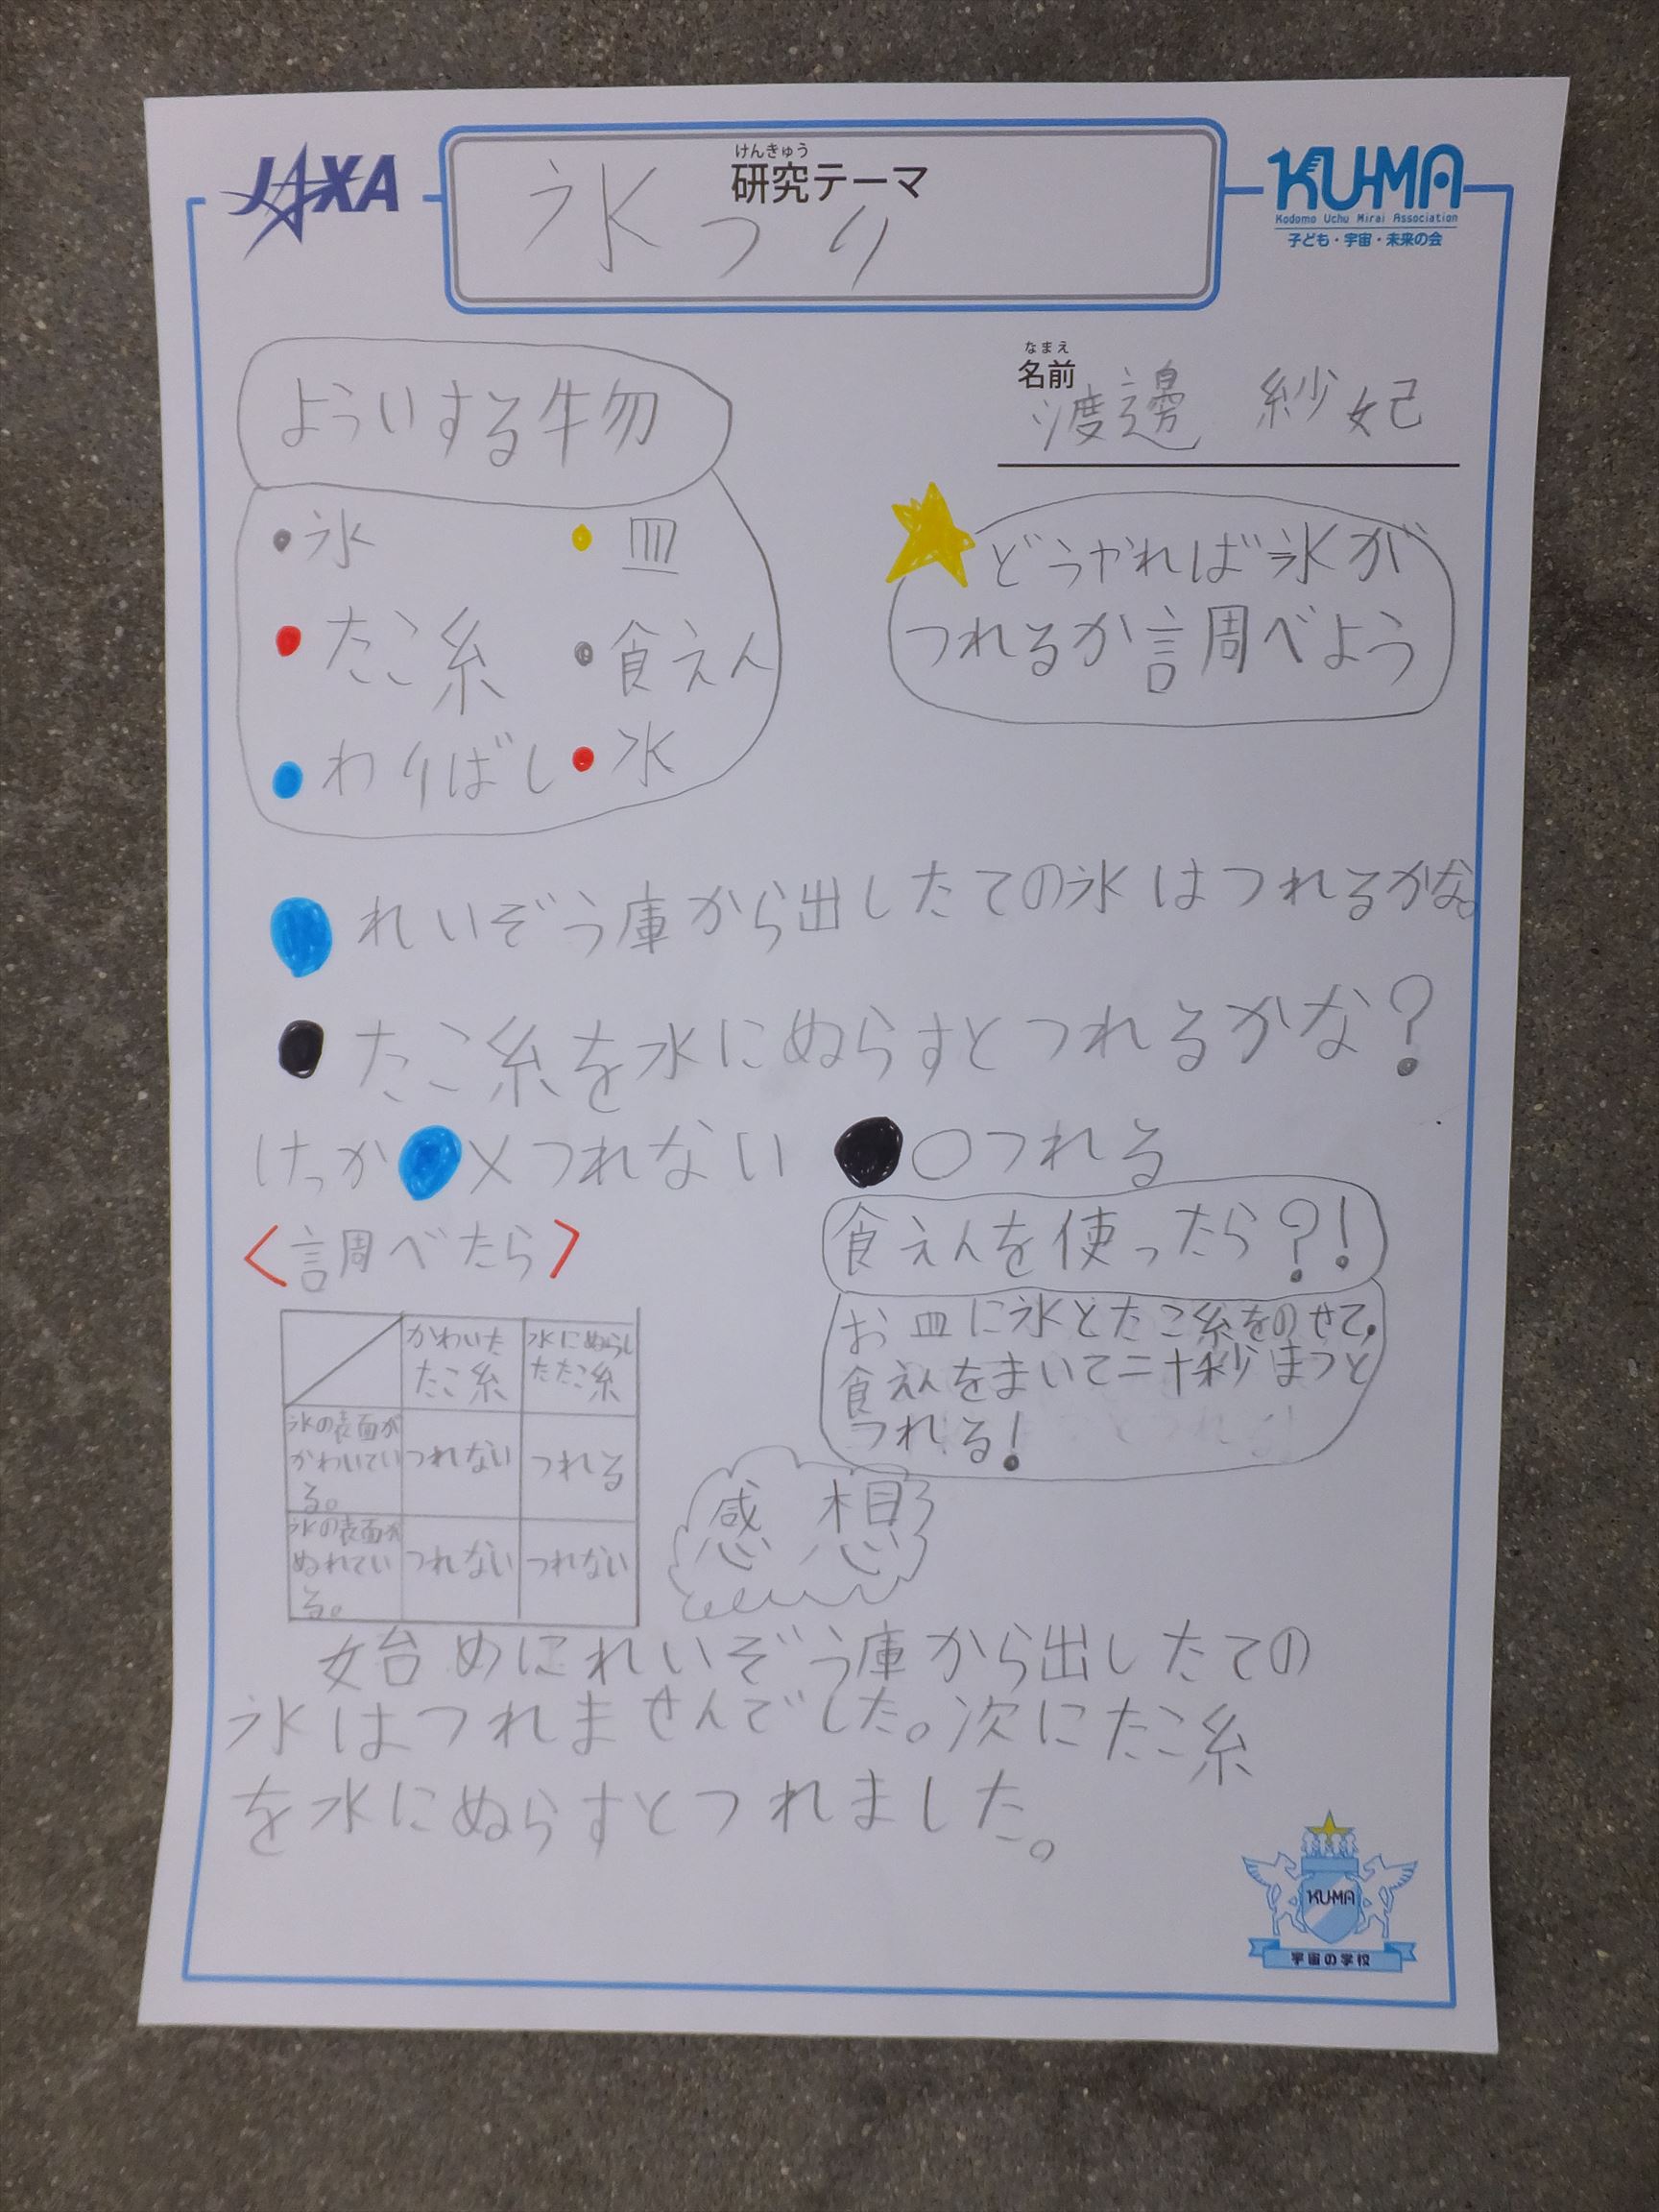 JAXA
けんきゅう
研究テーマ
氷つり
KU-MA
Kodomo Uchu Mirai Association
子ども・宇宙・未来の会
なまえ
名前
渡邊 紗妃
よういする物
氷
皿
たこ糸
食えん
わりばし
水
どうやれば氷が
つれるか調べよう
れいぞう庫から出したての氷はつれるかな。
たこ糸を水にぬらすとつれるかな?
けっか ×つれない ○つれる
<調べたら>
かわいた
たこ糸
水にぬらし
たたこ糸
氷の表面が
かわいてい
る。
つれない
つれる
氷の表面が
ぬれてい
る。
つれない
つれない
食えんを使ったら?!
お皿に氷とたこ糸をのせて、
食えんをまいて二十秒まつと
つれる!
感想
始めにれいぞう庫から出したての
氷はつれませんでした。次にたこ糸
を水にぬらすとつれました。
KU-MA
宇宙の学校